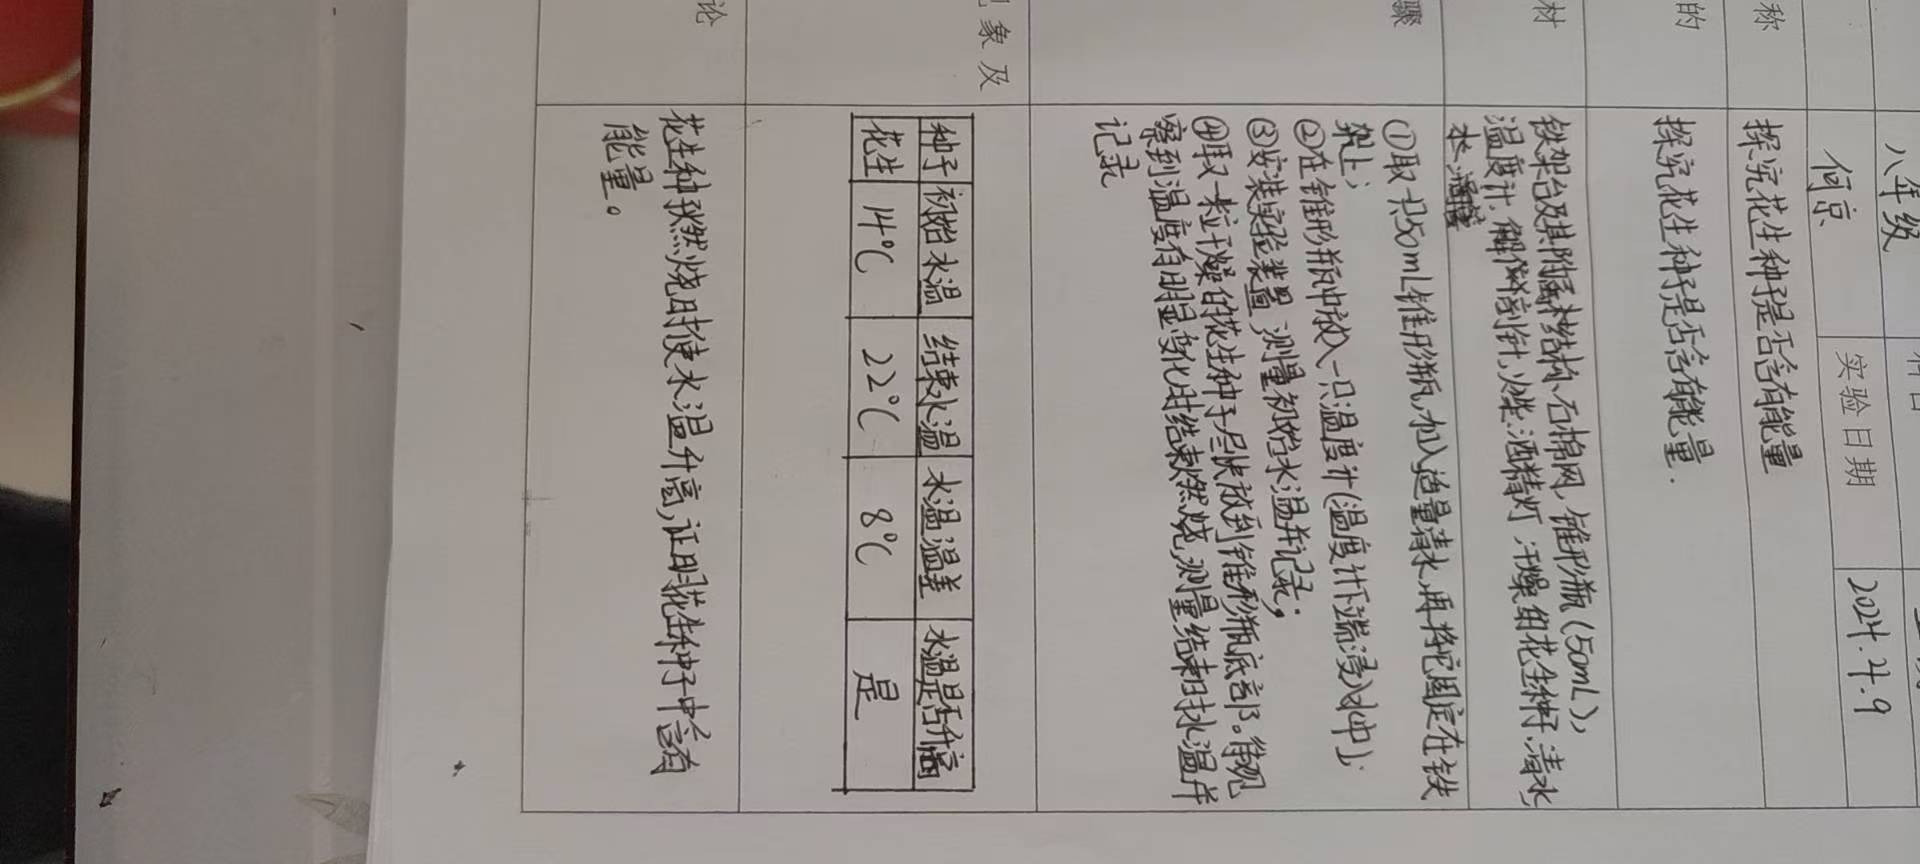 八年级
科目
何京
实验日期
2024.4.9
称
探究花生种子是否含有能量
的
探究花生种子是否含有能量.
材
铁架台及其附属结构、石棉网、锥形瓶(50mL)、
温度计、解剖针、火柴、酒精灯、干燥的花生种子、清水、
骤
①取一只50mL锥形瓶,加入适量清水,再将它固定在铁
架上;
②在锥形瓶中放入一只温度计(温度计下端浸入水中);
③安装实验装置,测量初始水温并记录;
④取一粒干燥的花生种子尽快放到锥形瓶底部。待观
察到温度有明显变化时结束燃烧,测量结束时水温并
记录
象及
种子 初始水温 结束水温 水温温差 水温是否升高
花生 14℃ 22℃ 8℃ 是
论
花生种子燃烧时使水温升高,证明花生种子中含有
能量。